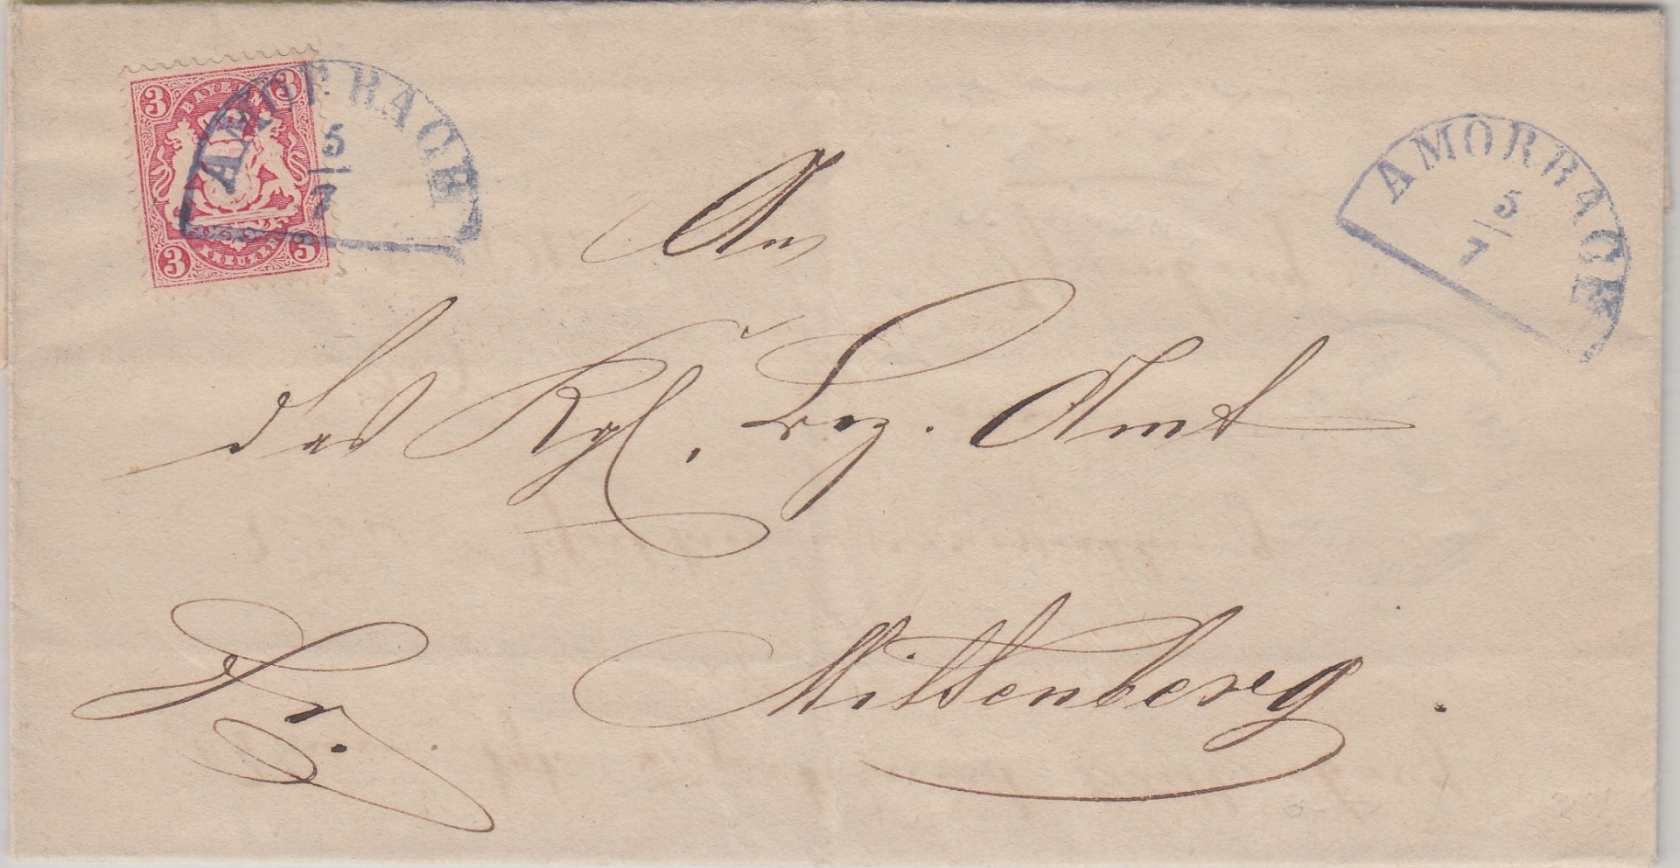 3 BAYERN 3
3 KREUZER 3
AMORBACH
5
7
AMORBACH
5
7
An
das Kgl. Bez. Amt
Fr. Miltenberg.